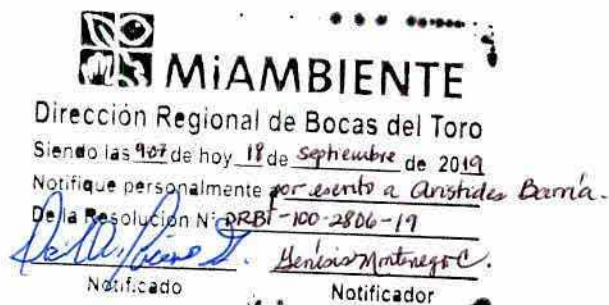 MiAMBIENTE
Dirección Regional de Bocas del Toro
Siendo las 9:07 de hoy 18 de septiembre de 2019
Notifique personalmente por escrito a Aristides Barría.
De la Resolución N° DRBT-100-2806-19
Génesis Montenegro C.
Notificado Notificador